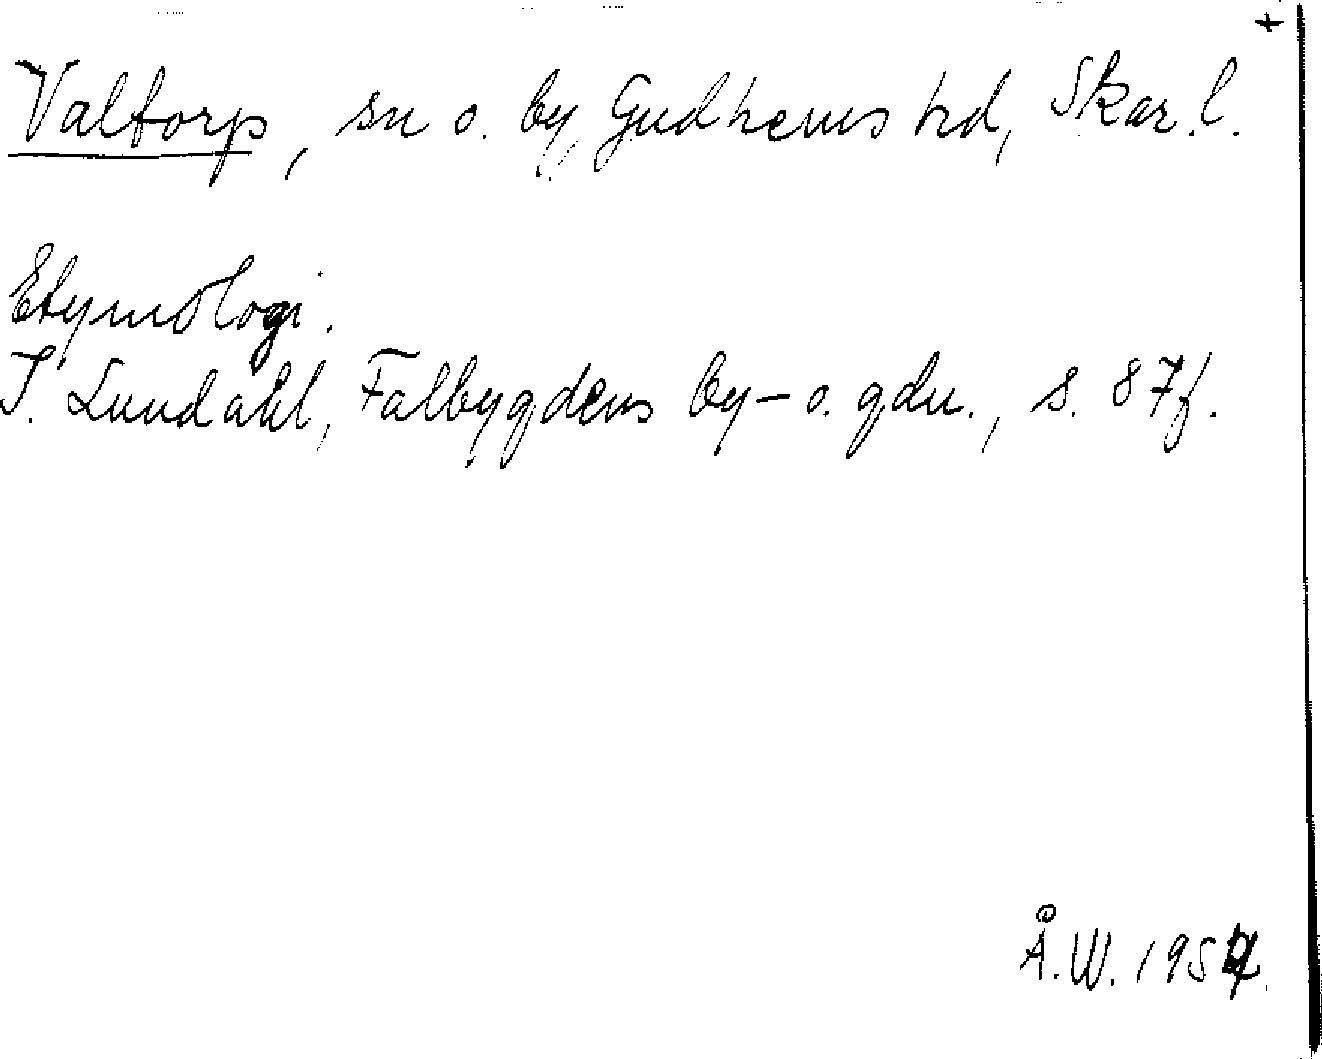 +
Valtorp, sn o. by, Gudhems hd, Skar. l.
Etymologi.
I. Lundahl, Falbygdens by- o. gdn., s. 87f.
Å.W. 195